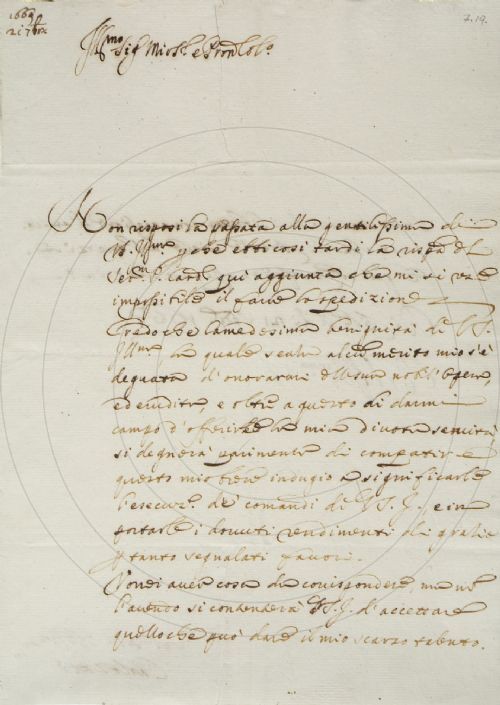 1669
21 7bre
7.19.
Ill.mo Sig.r Mio Sig.re e Pron Col.mo
Non risposi la passata alla gentilissima di
V.S. Ill.ma che ebbi così tardi la risp.ta del
Ser.mo P. Card. qui aggiunta che mi si rese
impossibile il farne la spedizione
Credo che la medesima benignità di V.S.
Ill.ma la quale senza alcun merito mio s'è
degnata d'onorarmi dell'sue nobil'opere,
ed erudite, e oltre a questo di darmi
campo d'oferirle la mia divota servitù
si degnerà parimente di compatire
questo mio breve indugio a significarle
l'esecuz.e de' comandi di V.S.I. e in
portarle i dovuti rendimenti di grazie
p tanto segnalati favori.
Vorrei aver cosa da corrispondere, ma non
l'avendo si contenterà V.S.I. d'accettare
quello che può dare il mio scarzo talento.